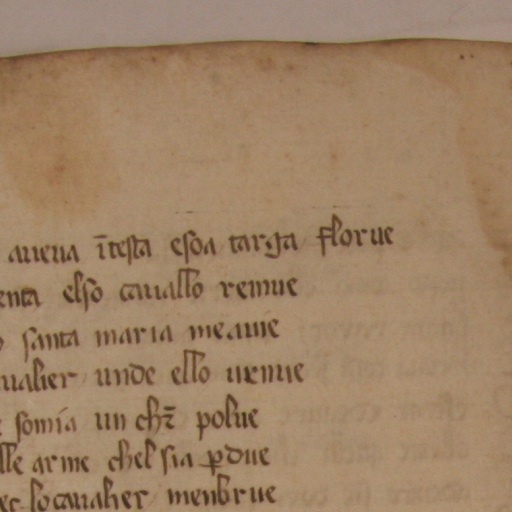 aueua ītesta esoa targa florue
enta elso cauallo remue
santa maria meauie
ualier unde ello uenue
somia un chr̄ polue
lle arme chel sia ꝑdue
ec so caualier menbrue